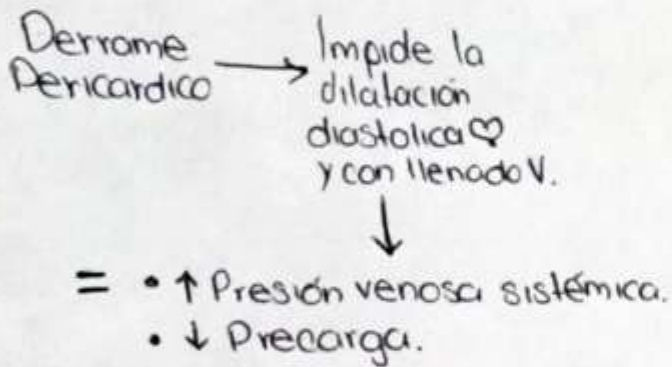 Derrame
Pericardico → Impide la
dilatación
diastolica ♡
y con llenado V.
↓
= • ↑ Presión venosa sistémica.
• ↓ Precarga.